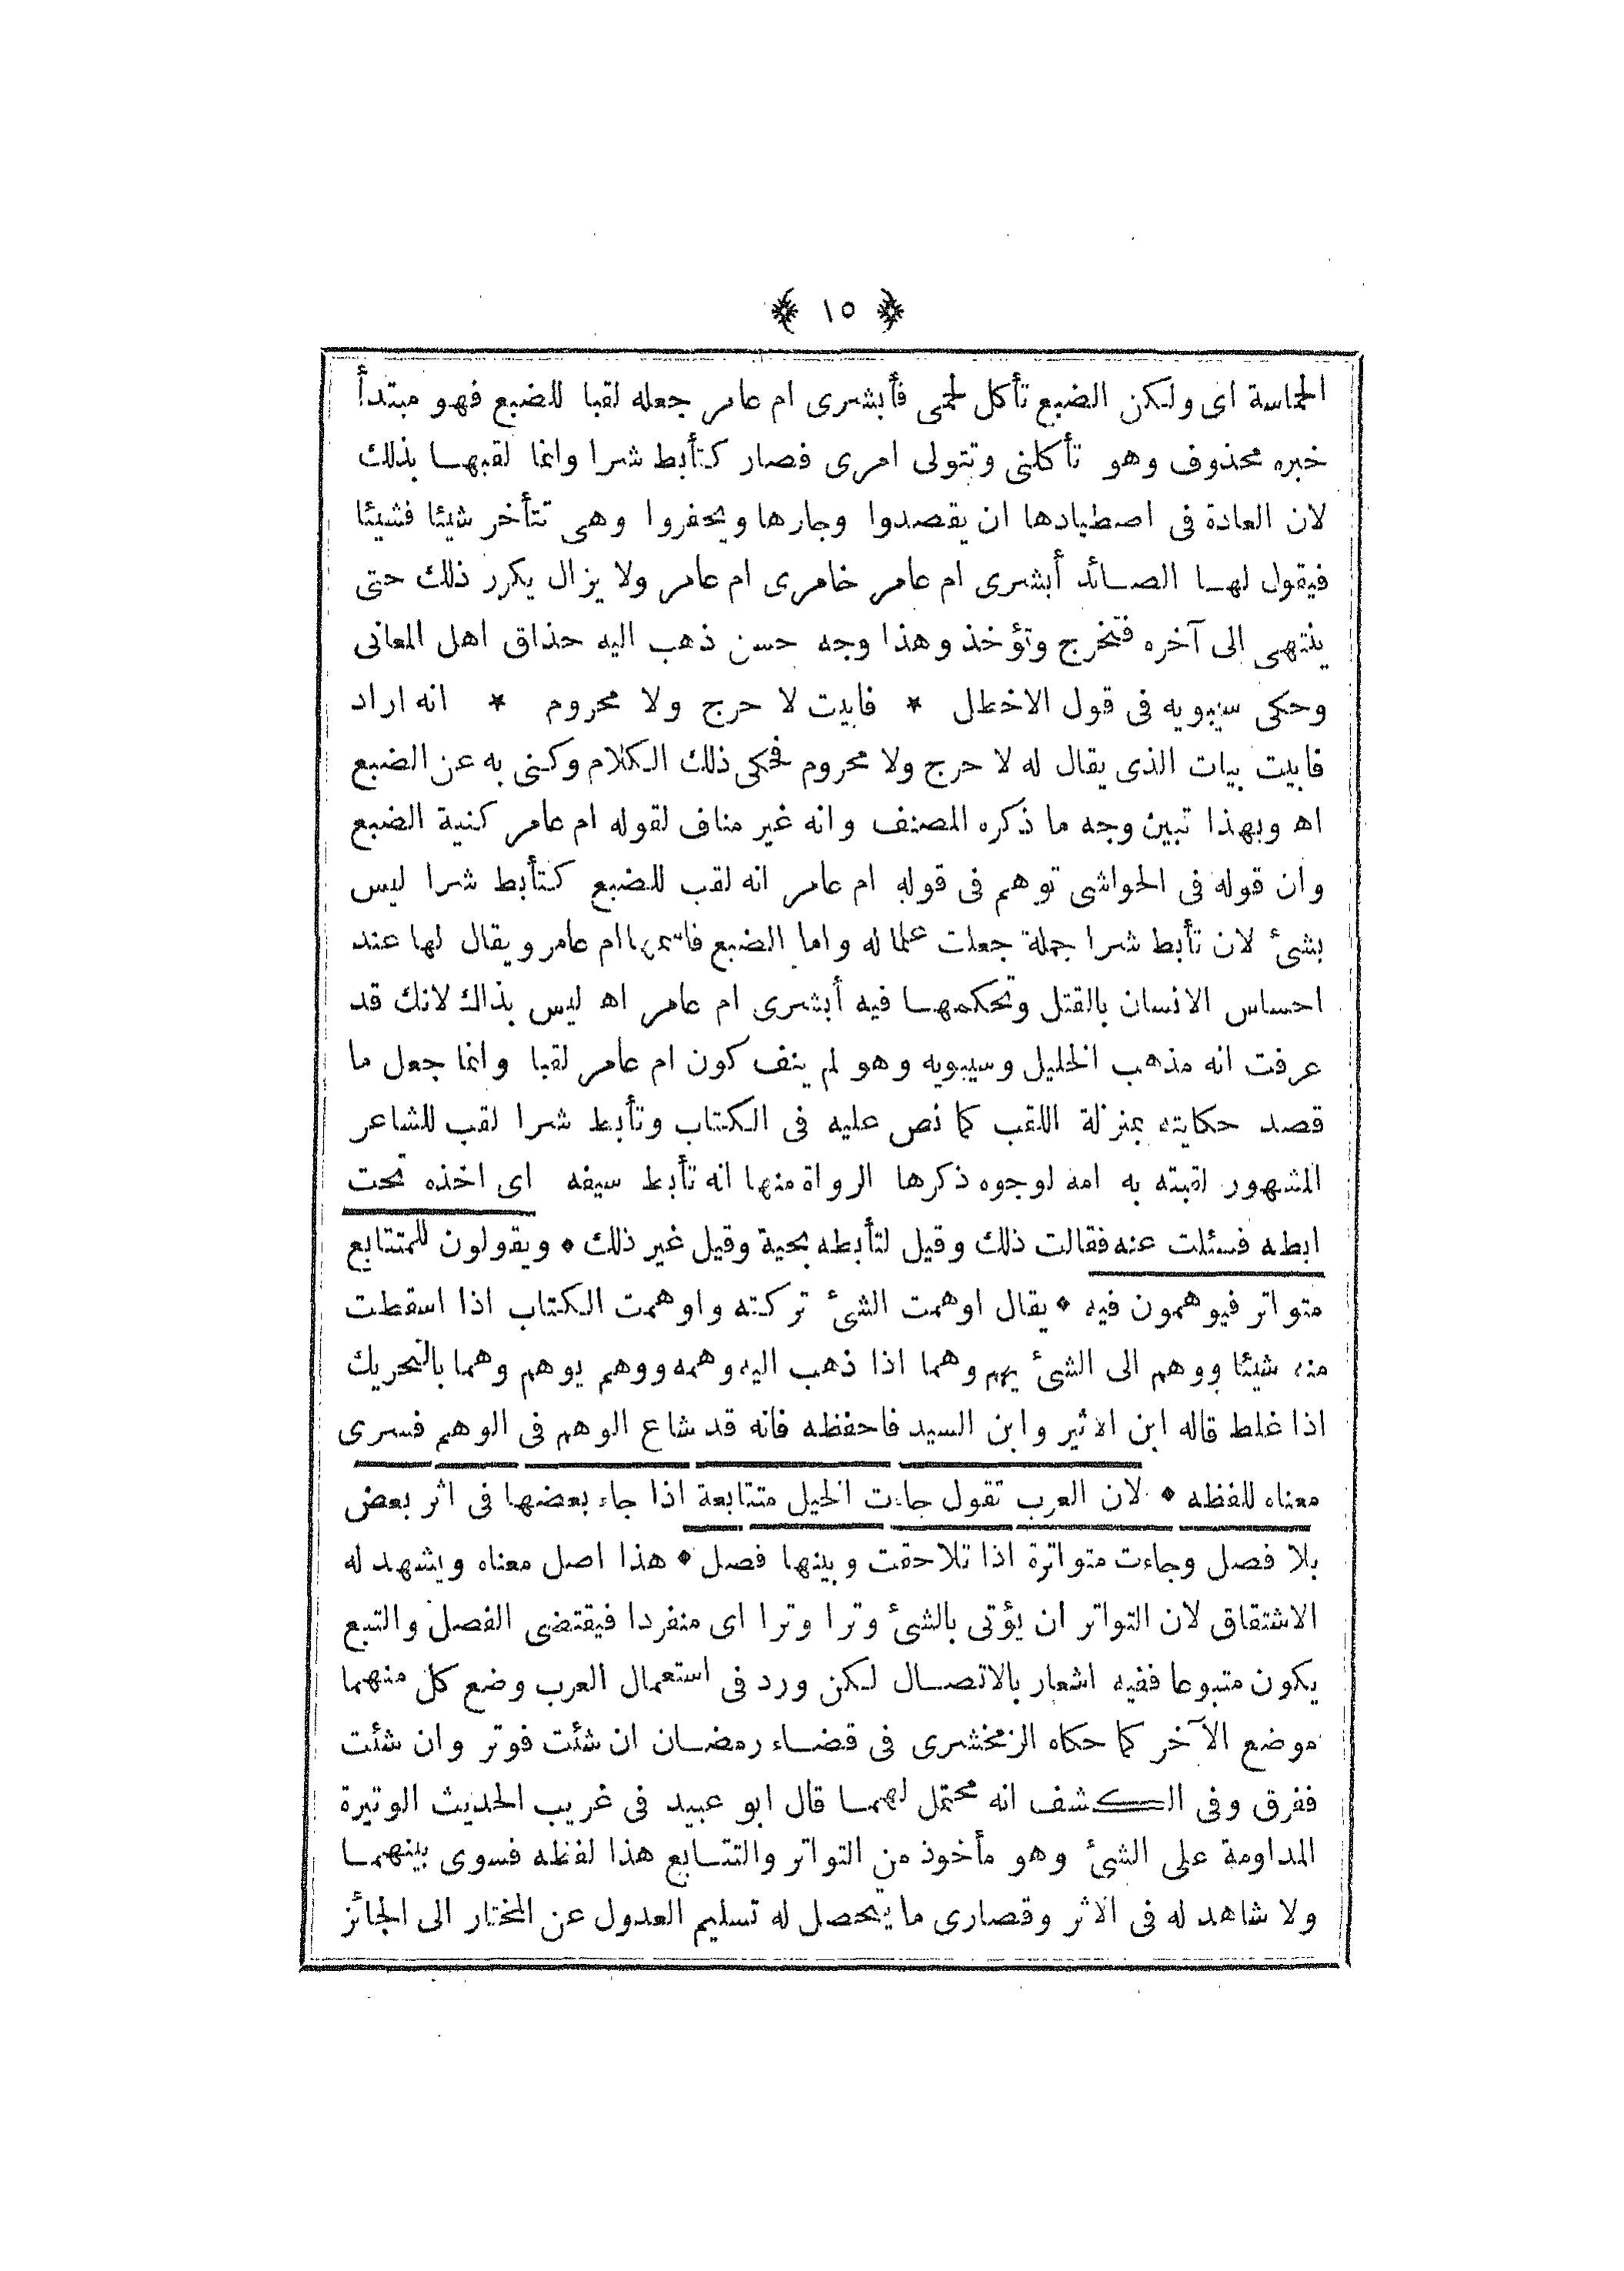 ﴿ ١٥ ﴾
الحماسة اى ولكن الضبع تأكل لحمى فأبشرى ام عامر جعله لقبا للضبع فهو مبتدأ
خبره محذوف وهو تأكلنى وتتولى امرى فصار كتأبط شرا وانما لقبها بذلك
لان العادة فى اصطيادها ان يقصدوا وجارها ويحفروا وهى تتأخر شيئا فشيئا
فيقول لها الصائد أبشرى ام عامر خامرى ام عامر ولا يزال يكرر ذلك حتى
ينتهى الى آخره فتخرج وتؤخذ وهذا وجه حسن ذهب اليه حذاق اهل المعانى
وحكى سيبويه فى قول الاخطل * فابيت لا حرج ولا محروم * انه اراد
فابيت بيات الذى يقال له لا حرج ولا محروم فحكى ذلك الكلام وكنى به عن الضبع
اه وبهذا تبين وجه ما ذكره المصنف وانه غير مناف لقوله ام عامر كنية الضبع
وان قوله فى الحواشى توهم فى قوله ام عامر انه لقب للضبع كتأبط شرا ليس
بشئ لان تأبط شرا جملة جعلت علما له واما الضبع فاسمها ام عامر ويقال لها عند
احساس الانسان بالقتل وتحكمها فيه أبشرى ام عامر اه ليس بذاك لانك قد
عرفت انه مذهب الخليل وسيبويه وهو لم ينف كون ام عامر لقبا وانما جعل ما
قصد حكايته بمنزلة اللقب كما نص عليه فى الكتاب وتأبط شرا لقب للشاعر
المشهور لقبته به امه لوجوه ذكرها الرواة منها انه تأبط سيفه اى اخذه تحت
ابطه فسئلت عنه فقالت ذلك وقيل لتأبطه بحية وقيل غير ذلك ⬥ ويقولون للمتتابع
متواتر فيوهمون فيه ⬥ يقال اوهمت الشئ تركته واوهمت الكتاب اذا اسقطت
منه شيئا ووهم الى الشئ يهم وهما اذا ذهب اليه وهمه ووهم يوهم وهما بالتحريك
اذا غلط قاله ابن الاثير وابن السيد فاحفظه فانه قد شاع الوهم فى الوهم فسرى
معناه للفظه ⬥ لان العرب تقول جاءت الخيل متتابعة اذا جاء بعضها فى اثر بعض
بلا فصل وجاءت متواترة اذا تلاحقت وبينها فصل ⬥ هذا اصل معناه ويشهد له
الاشتقاق لان التواتر ان يؤتى بالشئ وترا وترا اى منفردا فيقتضى الفصل والتبع
يكون متبوعا ففيه اشعار بالاتصال لكن ورد فى استعمال العرب وضع كل منهما
موضع الآخر كما حكاه الزمخشرى فى قضاء رمضان ان شئت فوتر وان شئت
ففرق وفى الكشف انه محتمل لهما قال ابو عبيد فى غريب الحديث الوتيرة
المداومة على الشئ وهو مأخوذ من التواتر والتتابع هذا لفظه فسوى بينهما
ولا شاهد له فى الاثر وقصارى ما يتحصل له تسليم العدول عن المختار الى الجائز